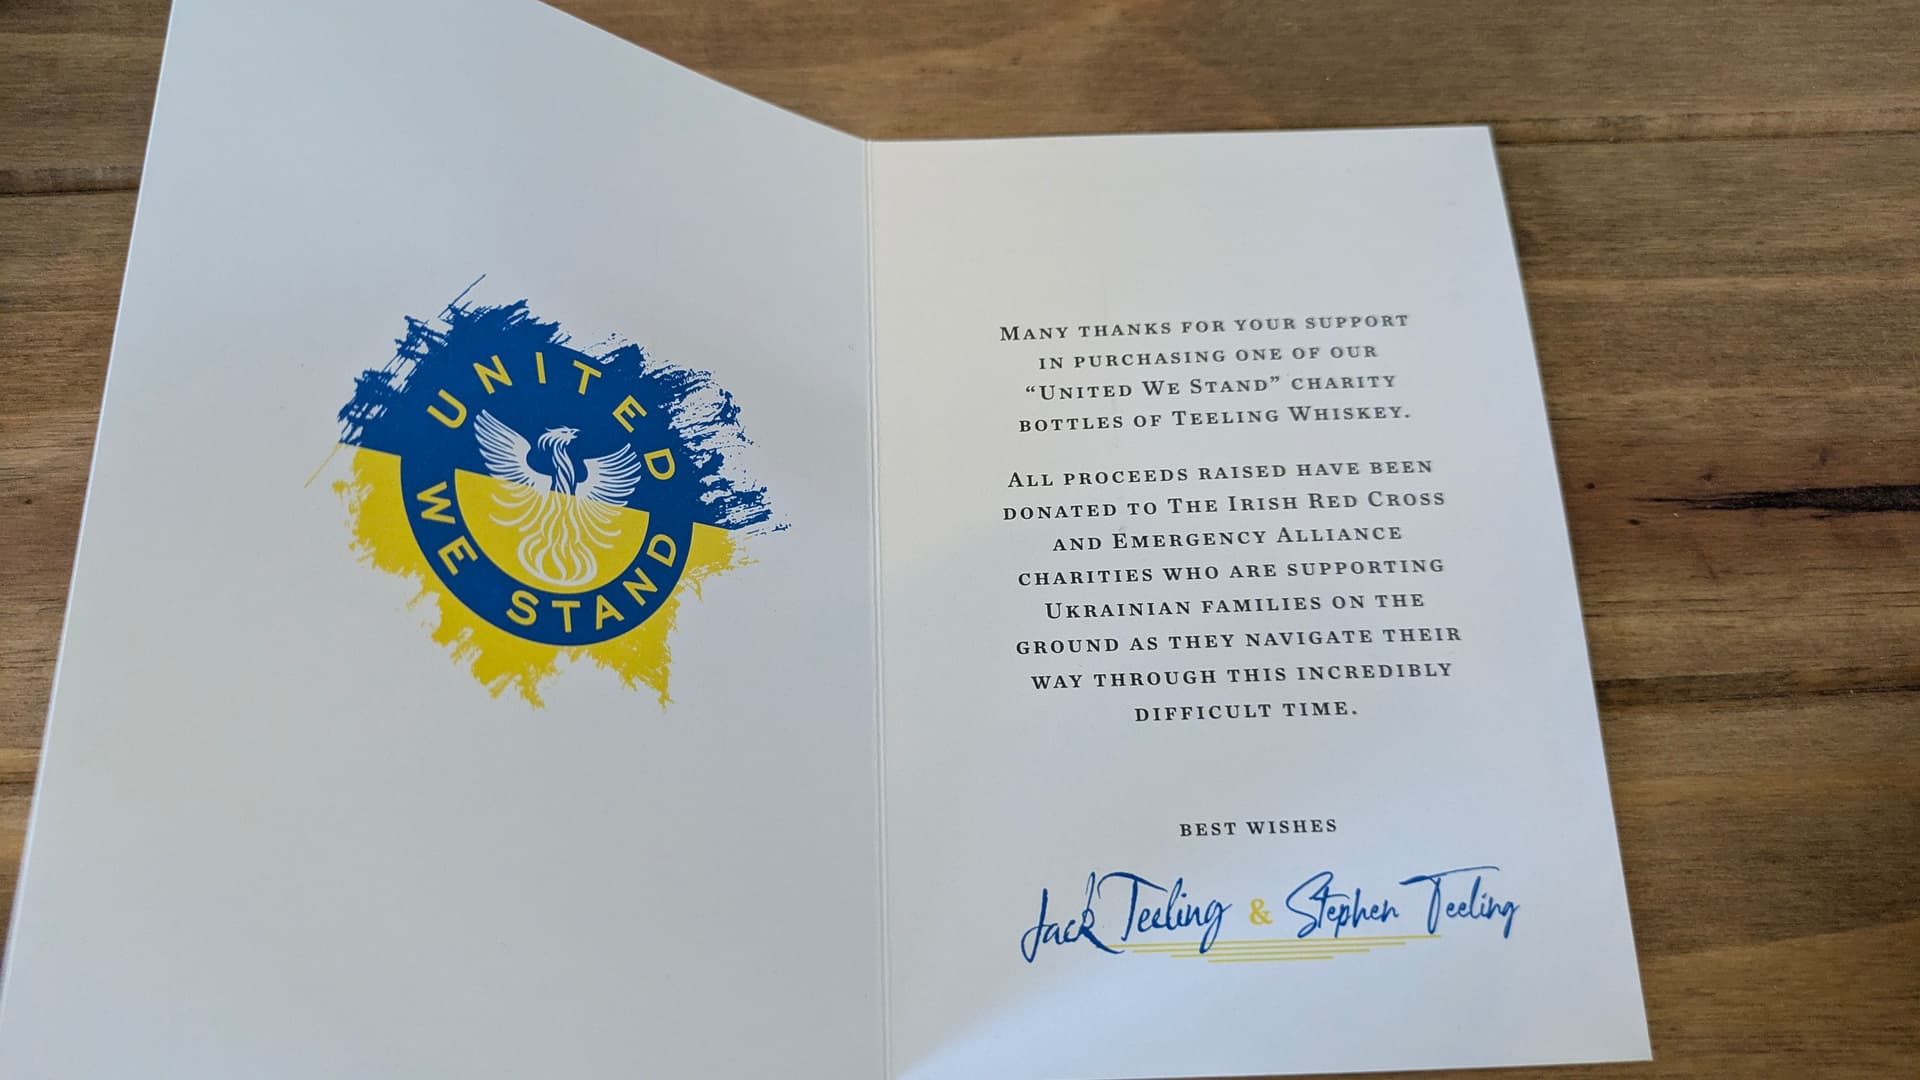 UNITED
WE STAND
MANY THANKS FOR YOUR SUPPORT
IN PURCHASING ONE OF OUR
“UNITED WE STAND” CHARITY
BOTTLES OF TEELING WHISKEY.
ALL PROCEEDS RAISED HAVE BEEN
DONATED TO THE IRISH RED CROSS
AND EMERGENCY ALLIANCE
CHARITIES WHO ARE SUPPORTING
UKRAINIAN FAMILIES ON THE
GROUND AS THEY NAVIGATE THEIR
WAY THROUGH THIS INCREDIBLY
DIFFICULT TIME.
BEST WISHES
Jack Teeling & Stephen Teeling